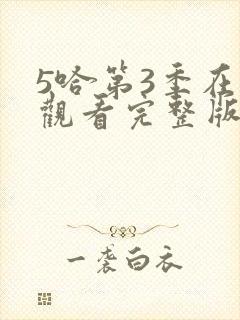 5哈第3季在
觀看完整版
一袭白衣